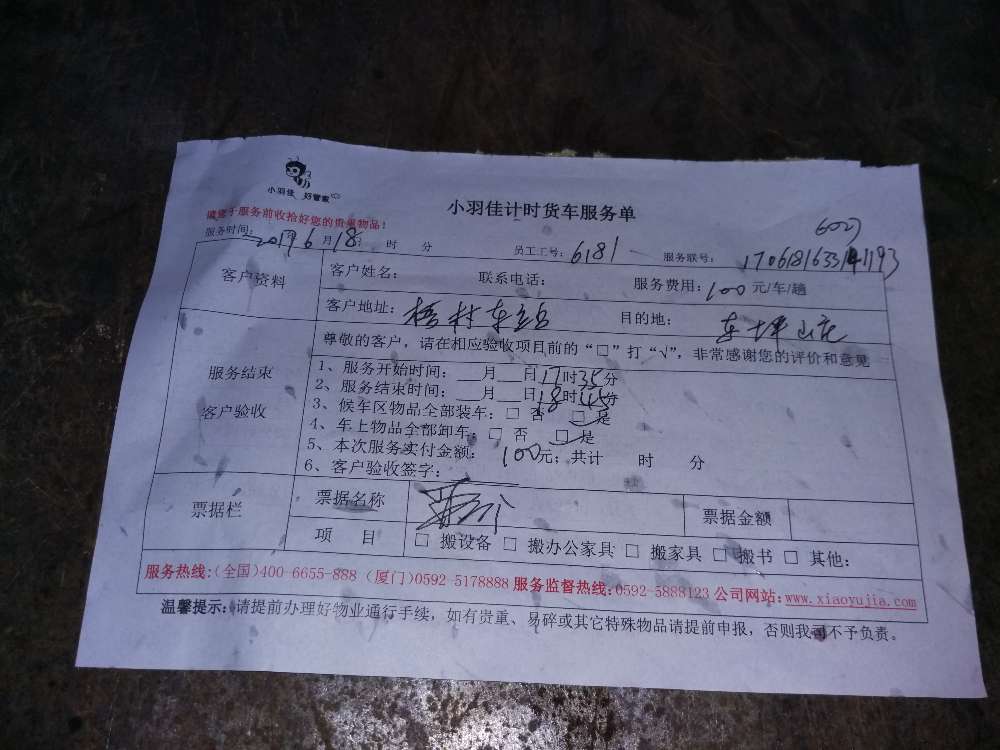 小羽佳 好管家
小羽佳计时货车服务单
请您于服务前收拾好您的贵重物品!
6027
服务时间: 2017年6月18日 时 分 员工工号: 6181 服务联号: 17061816331411193
客户资料 客户姓名: 联系电话: 服务费用: 100元/车/趟
客户地址: 梧村车站 目的地: 东坪山庄
服务结束 客户验收
尊敬的客户,请在相应验收项目前的“□”打“√”,非常感谢您的评价和意见
1、服务开始时间: ___月___日17时35分
2、服务结束时间: ___月___日18时45分
3、候车区物品全部装车: □ 否 □ 是
4、车上物品全部卸车: □ 否 □ 是
5、本次服务实付金额: 100元; 共计 时 分
6、客户验收签字:
票据栏 票据名称 票据金额
项 目 □ 搬设备 □ 搬办公家具 □ 搬家具 □ 搬书 □ 其他:
服务热线:(全国)400-6655-888 (厦门)0592-5178888 服务监督热线:0592-5888123 公司网站:www.xiaoyujia.com
温馨提示: 请提前办理好物业通行手续, 如有贵重、易碎或其它特殊物品请提前申报, 否则我司不予负责。